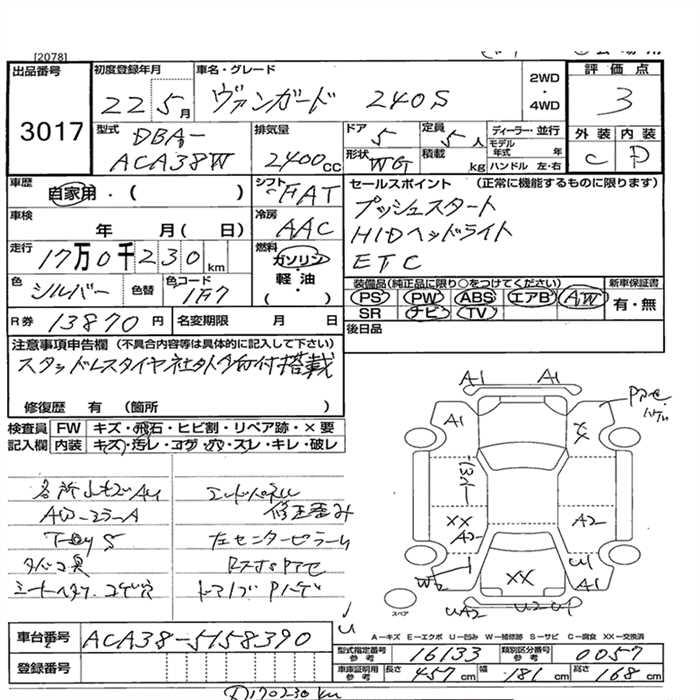 [2078]
出品番号
3017
初度登録年月
22 5月
車名・グレード
ヴァンガード 240S
2WD
・
4WD
評価点
3
外装 内装
C D
型式
DBA-
ACA38W
排気量
2400cc
ドア
5
形状 WG
定員
5人
積載 kg
ディーラー・並行
モデル年式 年
ハンドル 左・右
車歴
自家用・( )
シフト
FAT
車検
年 月( 日)
冷房
AAC
走行
17万0千230km
燃料
ガソリン
・
軽油
( )
色
シルバー
色替
色コード
1F7
R券 13870円
名変期限 月 日
セールスポイント (正常に機能するものに限ります)
プッシュスタート
HIDヘッドライト
ETC
装備品(純正品に限り○をつけてください)
PS PW ABS エアB AW
SR ナビ TV
新車保証書
有・無
後日品
注意事項申告欄 (不具合内容等は具体的に記入して下さい)
スタッドレスタイヤ社外AW付搭載
修復歴 有 (箇所 )
検査員記入欄
FW キズ・飛石・ヒビ割・リペア跡・×要
内装 キズ・汚レ・コゲ・穴・スレ・キレ・破レ
各所小キズAU
AW・ミラーA
エンドパネル
修正歪み
左センターピラーム
A1 A1
A1
XX
XX
A2
A2
W2
XX
U1
A1
UA2 U2 U1
スペア
U
A-キズ E-エクボ U-凹み W-補修跡 S-サビ C-腐食 XX-交換済
車台番号 ACA38-5158390
登録番号
型式指定番号 参考 16133
類別区分番号 参考 0057
車庫証明用 参考 長さ 457cm 幅 181cm 高さ 168cm
170230km